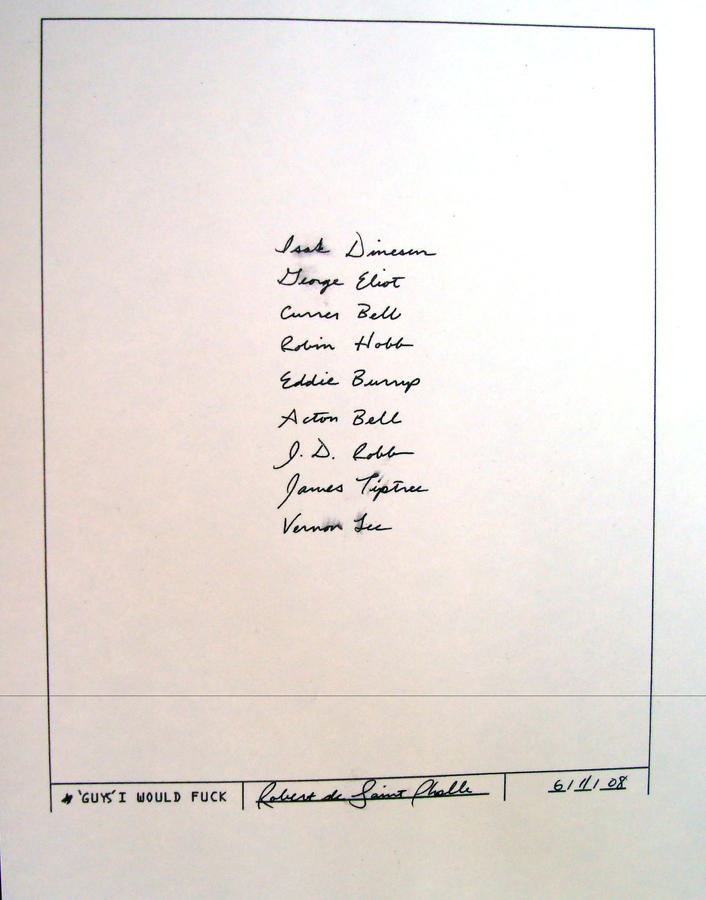 Isak Dinesen
George Eliot
Currer Bell
Robin Hobb
Eddie Burrup
Acton Bell
J. D. Robb
James Tiptree
Vernon Lee
# 'GUYS' I WOULD FUCK
Robert de Saint Phalle
6/11/08